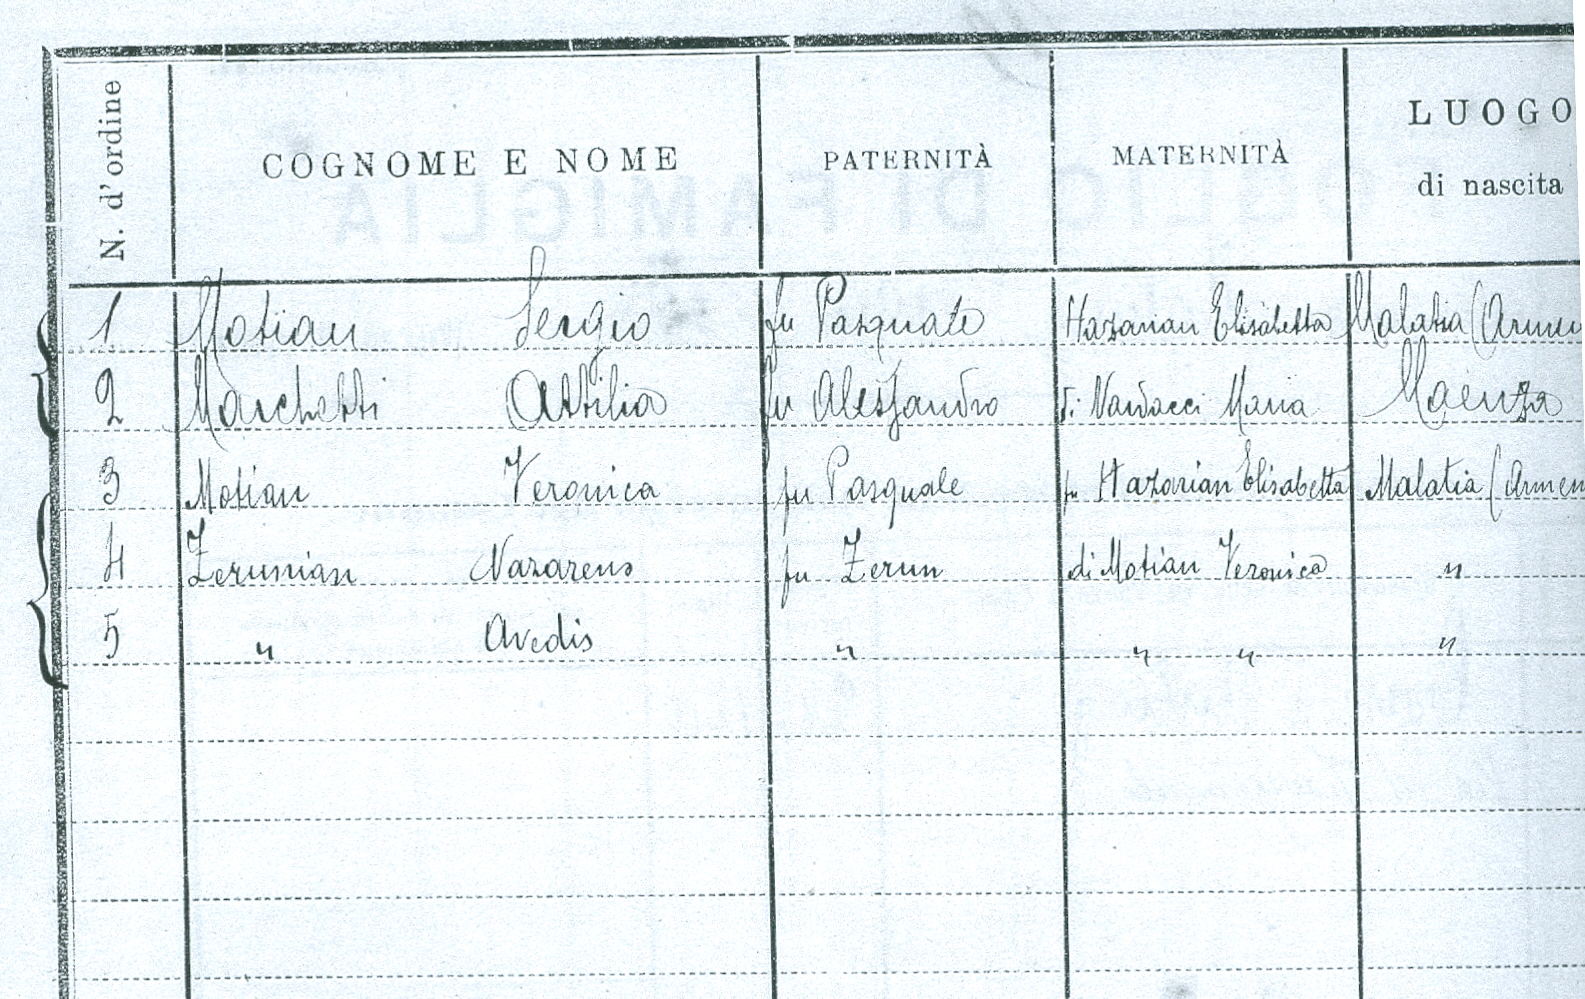 N. d'ordine COGNOME E NOME PATERNITÀ MATERNITÀ LUOGO
di nascita
1 Motian Sergio fu Pasquale Hazarian Elisabetta Malatia (Armen
2 Marchetti Attilia fu Alessandro di Nardacci Maria Maenza
3 Motian Veronica fu Pasquale fu Hazarian Elisabetta Malatia (Armen
4 Zerunian Nazareno fu Zerun di Motian Veronica "
5 " Avedis " " " "